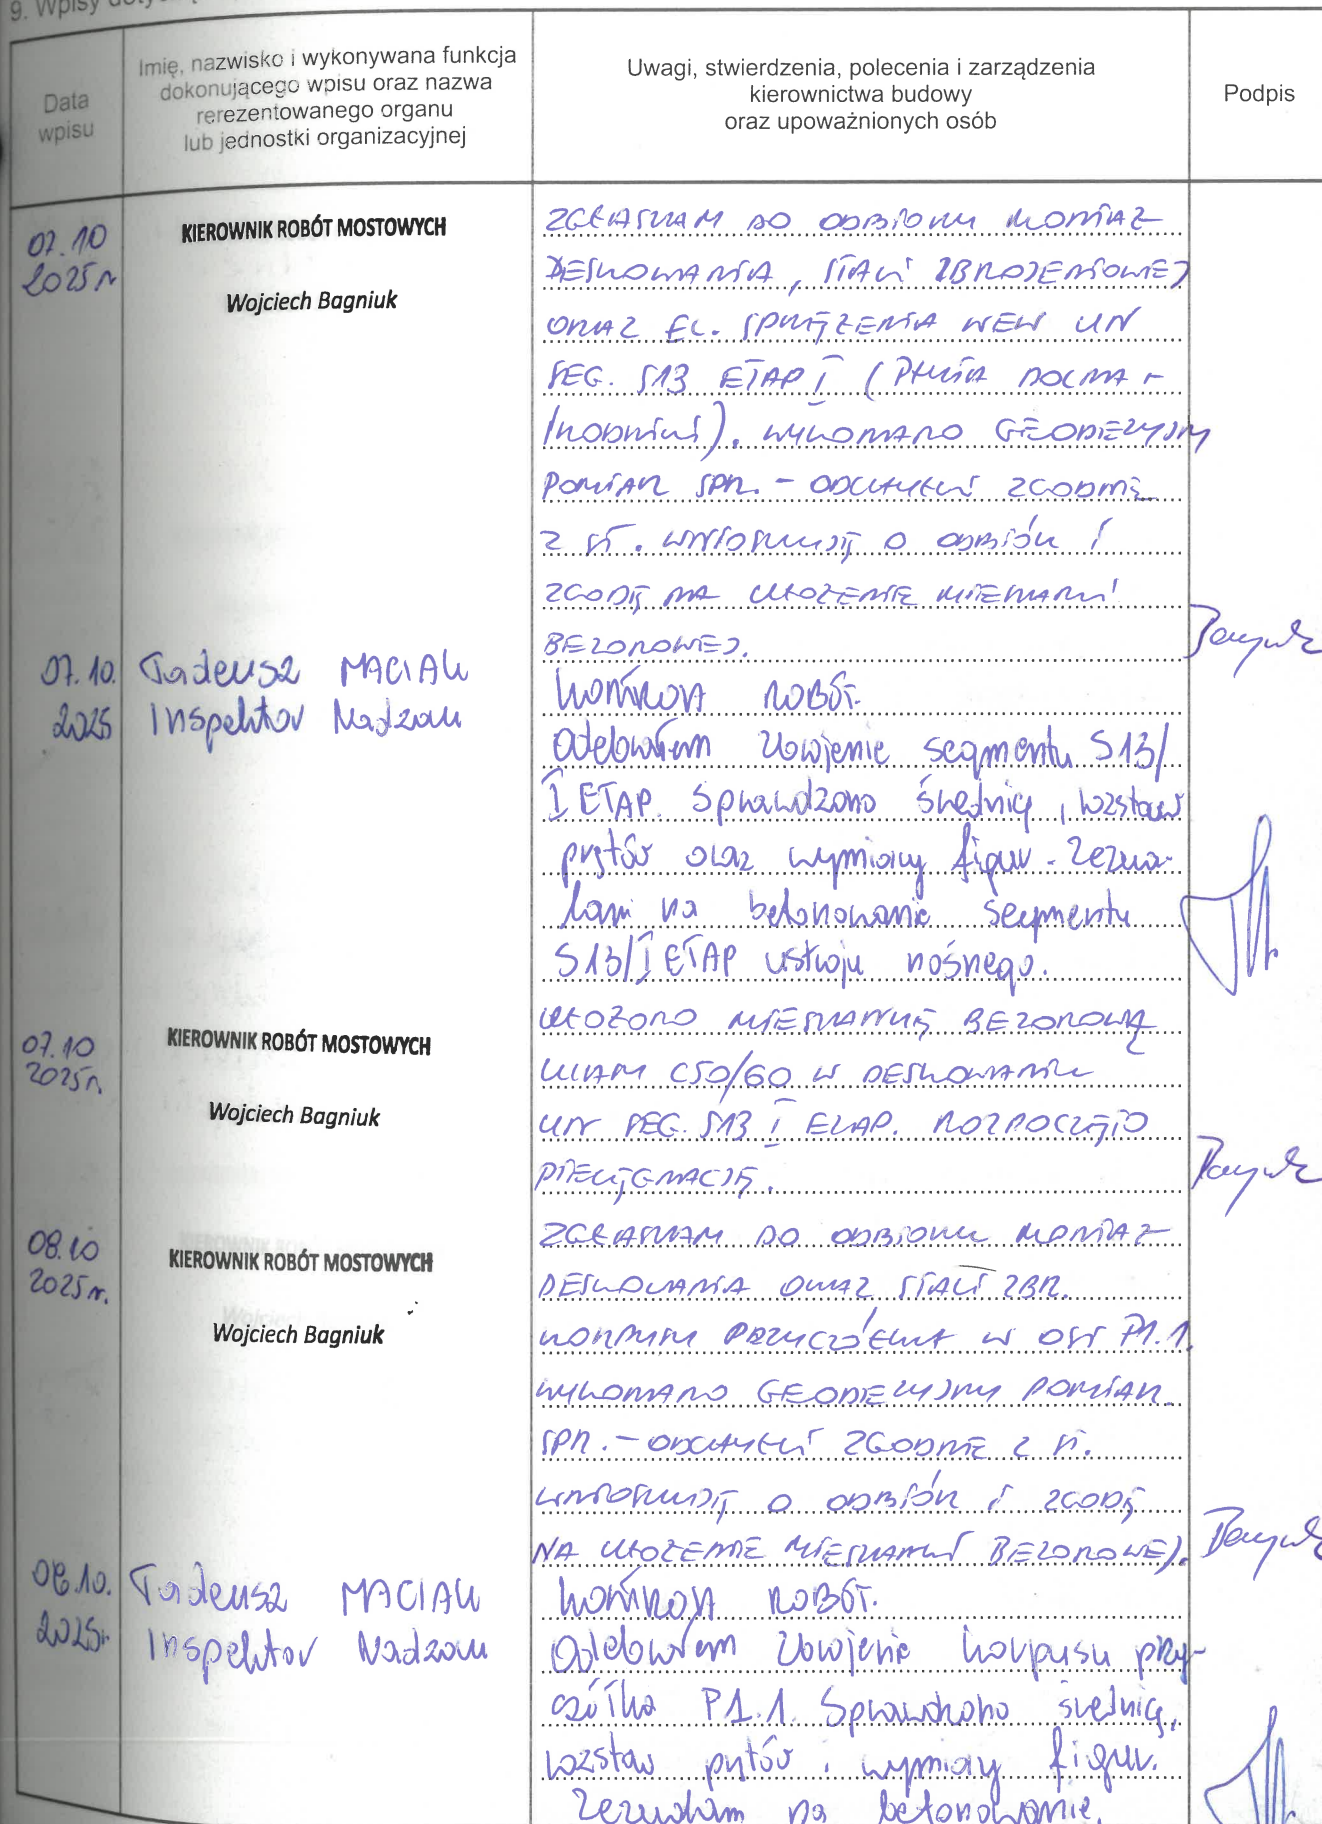 9. Wpisy
Data
wpisu
Imię, nazwisko i wykonywana funkcja
dokonującego wpisu oraz nazwa
rerezentowanego organu
lub jednostki organizacyjnej
Uwagi, stwierdzenia, polecenia i zarządzenia
kierownictwa budowy
oraz upoważnionych osób
Podpis
07.10
2025r
KIEROWNIK ROBÓT MOSTOWYCH
Wojciech Bagniuk
ZGŁASZAM DO ODBIORU MONTAŻ
DESKOWANIA, STALI ZBROJENIOWEJ
ORAZ EL. SPRĘŻENIA WEW UN
SEG. S13 ETAP I (PŁYTA DOLNA +
ŚRODNIKI). WYKONANO GEODEZYJNY
POMIAR SPR. - ODCHYŁKI ZGODNE
Z ST. WNIOSKUJĘ O ODBIÓR I
ZGODĘ NA UŁOŻENIE MIESZANKI
BETONOWEJ.
07.10.
2025
Tadeusz MACIAK
Inspektor Nadzoru
KONTROLA ROBÓT.
Odebrałem zbrojenie segmentu S13/
I ETAP. Sprawdzono średnicę, rozstaw
prętów oraz wymiary figur. Zezwa-
lam na betonowanie segmentu
S13/I ETAP ustroju nośnego.
07.10
2025r.
KIEROWNIK ROBÓT MOSTOWYCH
Wojciech Bagniuk
UŁOŻONO MIESZANKĘ BETONOWĄ
KLASY C50/60 W DESKOWANIU
UN SEG. S13 I ETAP. ROZPOCZĘTO
PIELĘGNACJĘ.
08.10
2025r.
KIEROWNIK ROBÓT MOSTOWYCH
Wojciech Bagniuk
ZGŁASZAM DO ODBIORU MONTAŻ
DESKOWANIA ORAZ STALI ZBR.
KORPUSU PRZYCZÓŁKA W OSI P1.1.
WYKONANO GEODEZYJNY POMIAR
SPR. - ODCHYŁKI ZGODNE Z ST.
WNIOSKUJĘ O ODBIÓR I ZGODĘ
NA UŁOŻENIE MIESZANKI BETONOWEJ.
08.10.
2025r
Tadeusz MACIAK
Inspektor Nadzoru
KONTROLA ROBÓT.
Odebrałem zbrojenie korpusu przy-
czółka P1.1. Sprawdzono średnicę,
rozstaw prętów i wymiary figur.
Zezwalam na betonowanie.